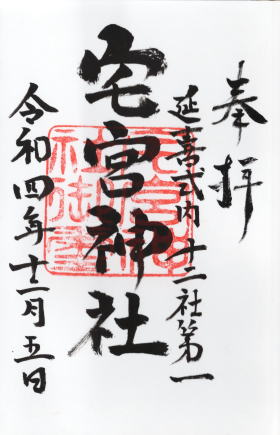 奉拝
延喜式内十二社第一
宅宮神社
令和四年十二月五日